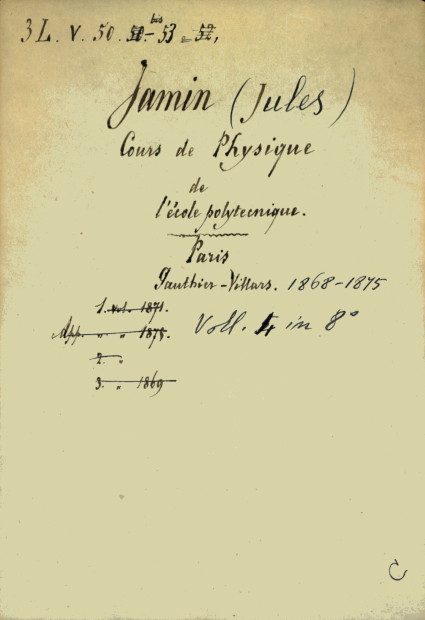 bis
3 L. V. 50. 51 - 53 = 52,
Jamin (Jules)
Cours de Physique
de
l'école polytecnique.
Paris
Gauthier-Villars. 1868-1875
1. vol. 1871.
App. " " 1875.
Voll. 4 in 8°
2. "
3. " 1869
C